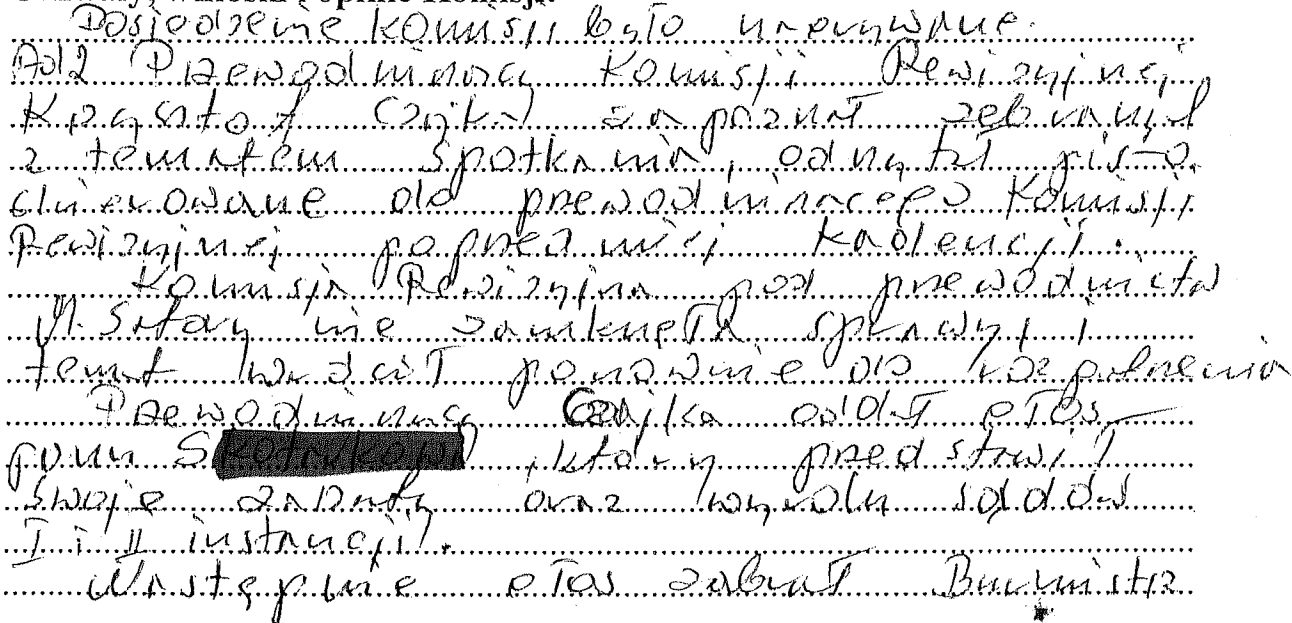 wnioski i opinie Komisji:
Posiedzenie komisji było nagrywane.
Ad2 Przewodniczący Komisji Rewizyjnej
Krzysztof Czajka zapoznał zebranych
z tematem spotkania, odczytał pismo
skierowane do przewodniczącego Komisji
Rewizyjnej poprzedniej kadencji.
Komisja Rewizyjna pod przewodnictw
M. Satory nie zamknęła sprawy i
temat wrócił ponownie do rozpatrzenia
Przewodniczący Czajka oddał głos
panu S , który przedstawił
swoje zarzuty oraz wyroki sądów
I i II instancji.
Następnie głos zabrał Burmistrz